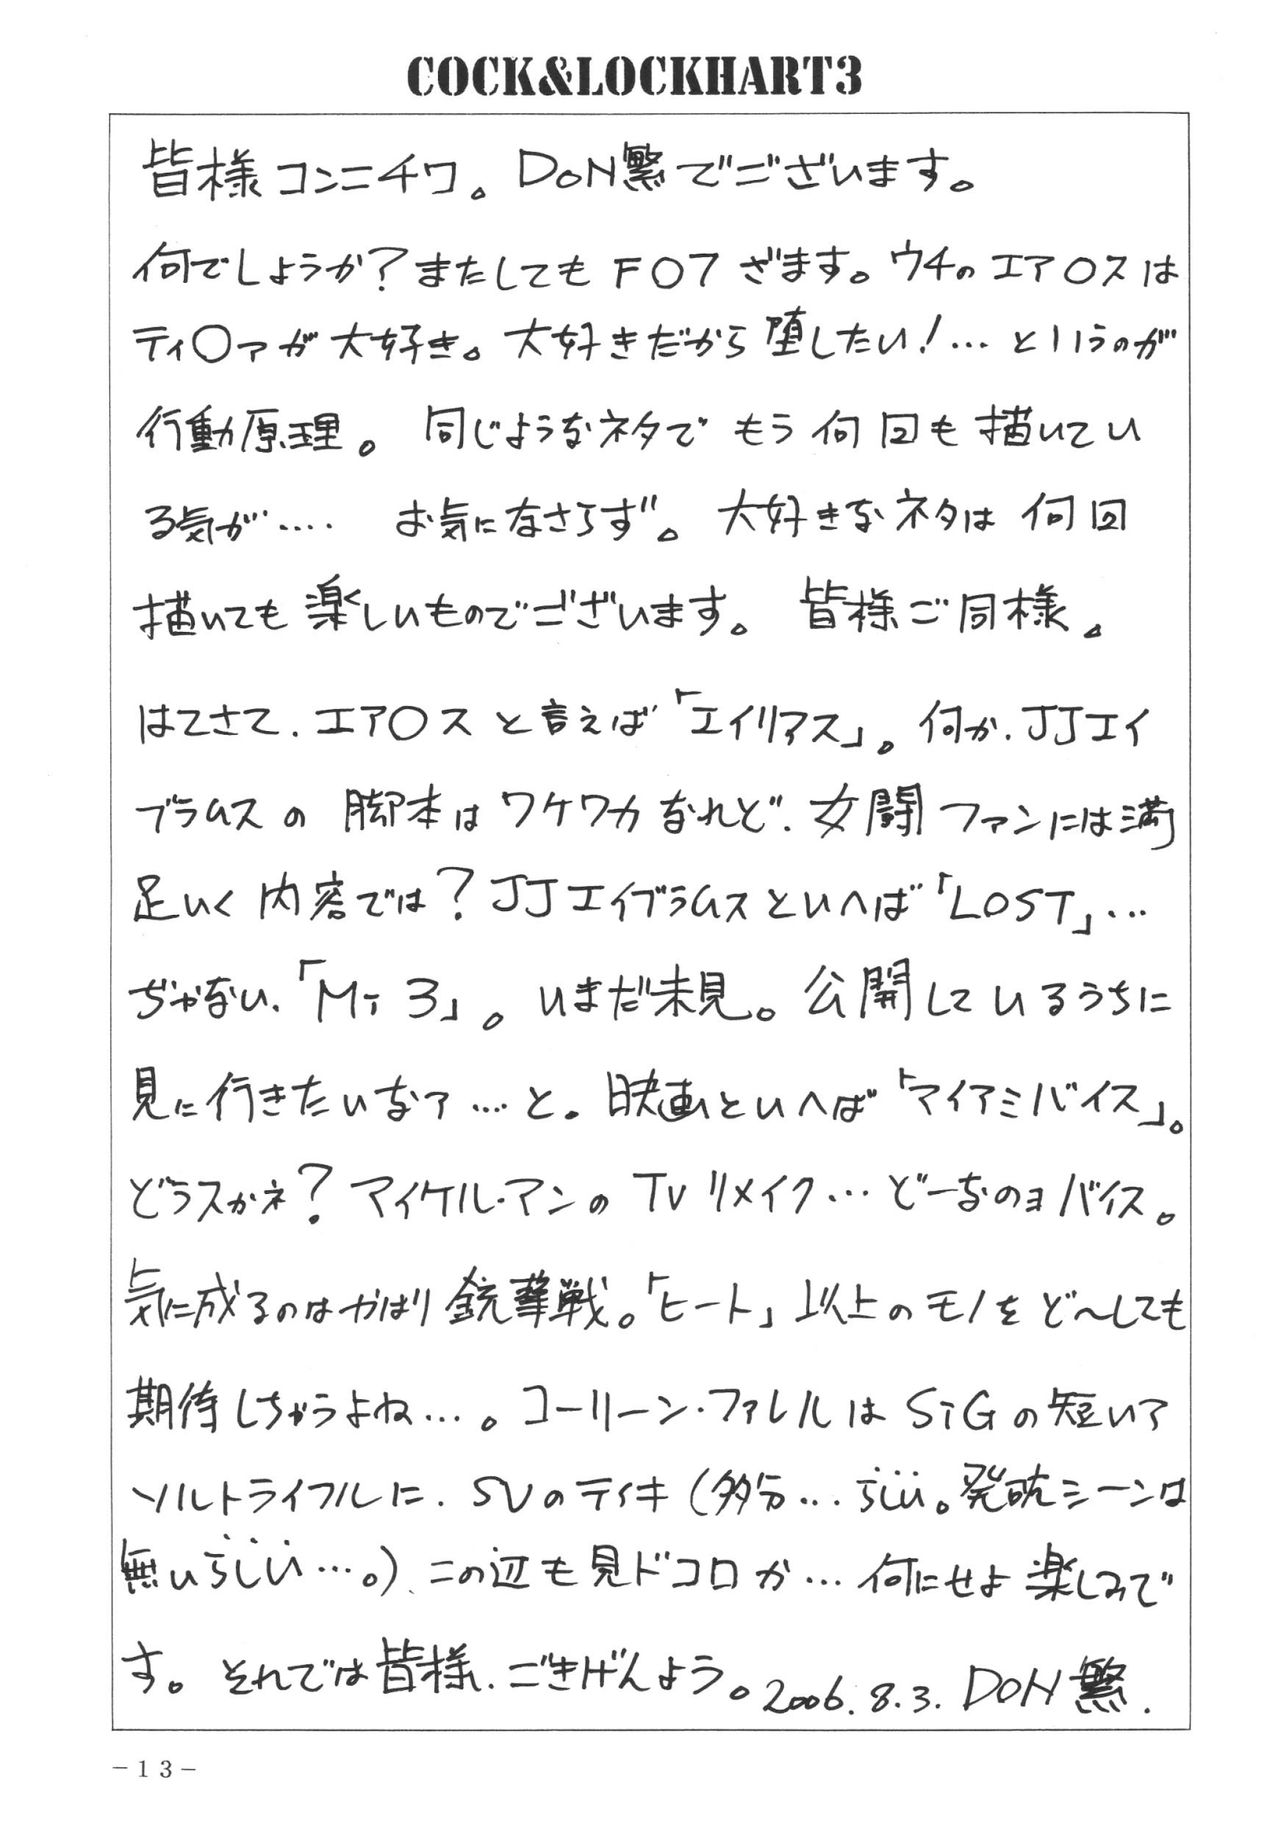 COCK&LOCKHART3
皆様コンニチワ。DoN繁でございます。
何でしょうか?またしてもFO7ざます。ウチのエア〇スは
ティ〇ァが大好き。大好きだから堕したい!…というのが
行動原理。同じようなネタでもう何回も描いてい
る気が‥‥ お気になさらず。大好きなネタは何回
描いても楽しいものでございます。皆様ご同様。
はてさて、エア〇スと言えば「エイリアス」。何か、JJエイ
ブラムスの脚本はワケワカなれど、女闘ファンには満
足いく内容では?JJエイブラムスといへば「LOST」…
ぢゃない、「Mi3」。いまだ未見。公開しているうちに
見に行きたいなァ…と。映画といへば「マイアミバイス」。
どうスかネ?マイケル・マンのTVリメイク…どーなのョバイス。
気に成るのはやはり銃撃戦。「ヒート」以上のモノをど〜しても
期待しちゃうよね…。コーリーン・ファレルはSiGの短いア
ソルトライフルに、SVのティキ(多分…らしい。発砲シーンは
無いらしい…。)、この辺も見ドコロか…何にせよ楽しみで
す。それでは皆様、ごきげんよう。2006.8.3.DoN繁.
-13-